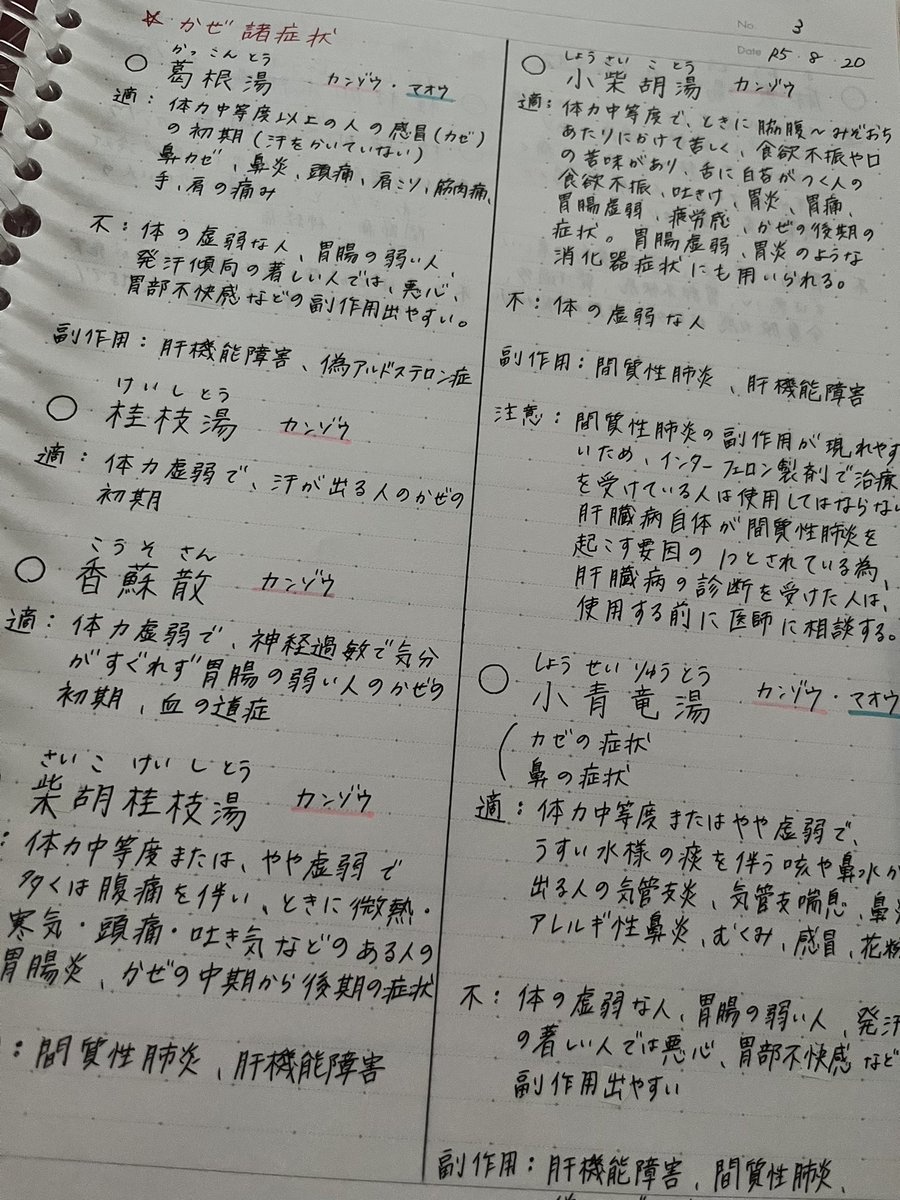 ☆ かぜ 諸症状
かっこんとう
○ 葛根湯 カンゾウ・マオウ
適: 体力中等度以上の人の感冒(カゼ)
の初期(汗をかいていない)
鼻カゼ、鼻炎、頭痛、肩こり、筋肉痛、
手、肩の痛み
不: 体の虚弱な人、胃腸の弱い人、
発汗傾向の著しい人では、悪心、
胃部不快感などの副作用出やすい。
副作用: 肝機能障害、偽アルドステロン症
けいしとう
○ 桂枝湯 カンゾウ
適: 体力虚弱で、汗が出る人のかぜの
初期
こうそさん
○ 香蘇散 カンゾウ
適: 体力虚弱で、神経過敏で気分
がすぐれず胃腸の弱い人のかぜの
初期、血の道症
さいこけいしとう
柴胡桂枝湯 カンゾウ
: 体力中等度または、やや虚弱で
多くは腹痛を伴い、ときに微熱・
寒気・頭痛・吐き気などのある人の
胃腸炎、かぜの中期から後期の症状
: 間質性肺炎、肝機能障害
No. 3
Date R5・8・20
しょうさいことう
○ 小柴胡湯 カンゾウ
適: 体力中等度で、ときに脇腹~みぞおち
あたりにかけて苦しく、食欲不振や口
の苦味があり、舌に白苔がつく人の
食欲不振、吐きけ、胃炎、胃痛、
胃腸虚弱、疲労感、かぜの後期の
症状。胃腸虚弱、胃炎のような
消化器症状にも用いられる。
不: 体の虚弱な人
副作用: 間質性肺炎、肝機能障害
注意: 間質性肺炎の副作用が現れやす
いため、インターフェロン製剤で治療
を受けている人は使用してはならない
肝臓病自体が間質性肺炎を
起こす要因の1つとされている為、
肝臓病の診断を受けた人は、
使用する前に医師に相談する。
しょうせいりゅうとう
○ 小青竜湯 カンゾウ・マオウ
(カゼの症状
鼻の症状
適: 体力中等度またはやや虚弱で、
うすい水様の痰を伴う咳や鼻水が
出る人の気管支炎、気管支喘息、鼻炎
アレルギ性鼻炎、むくみ、感冒、花粉
不: 体の虚弱な人、胃腸の弱い人、発汗
の著しい人では悪心、胃部不快感など
副作用出やすい
副作用: 肝機能障害、間質性肺炎、